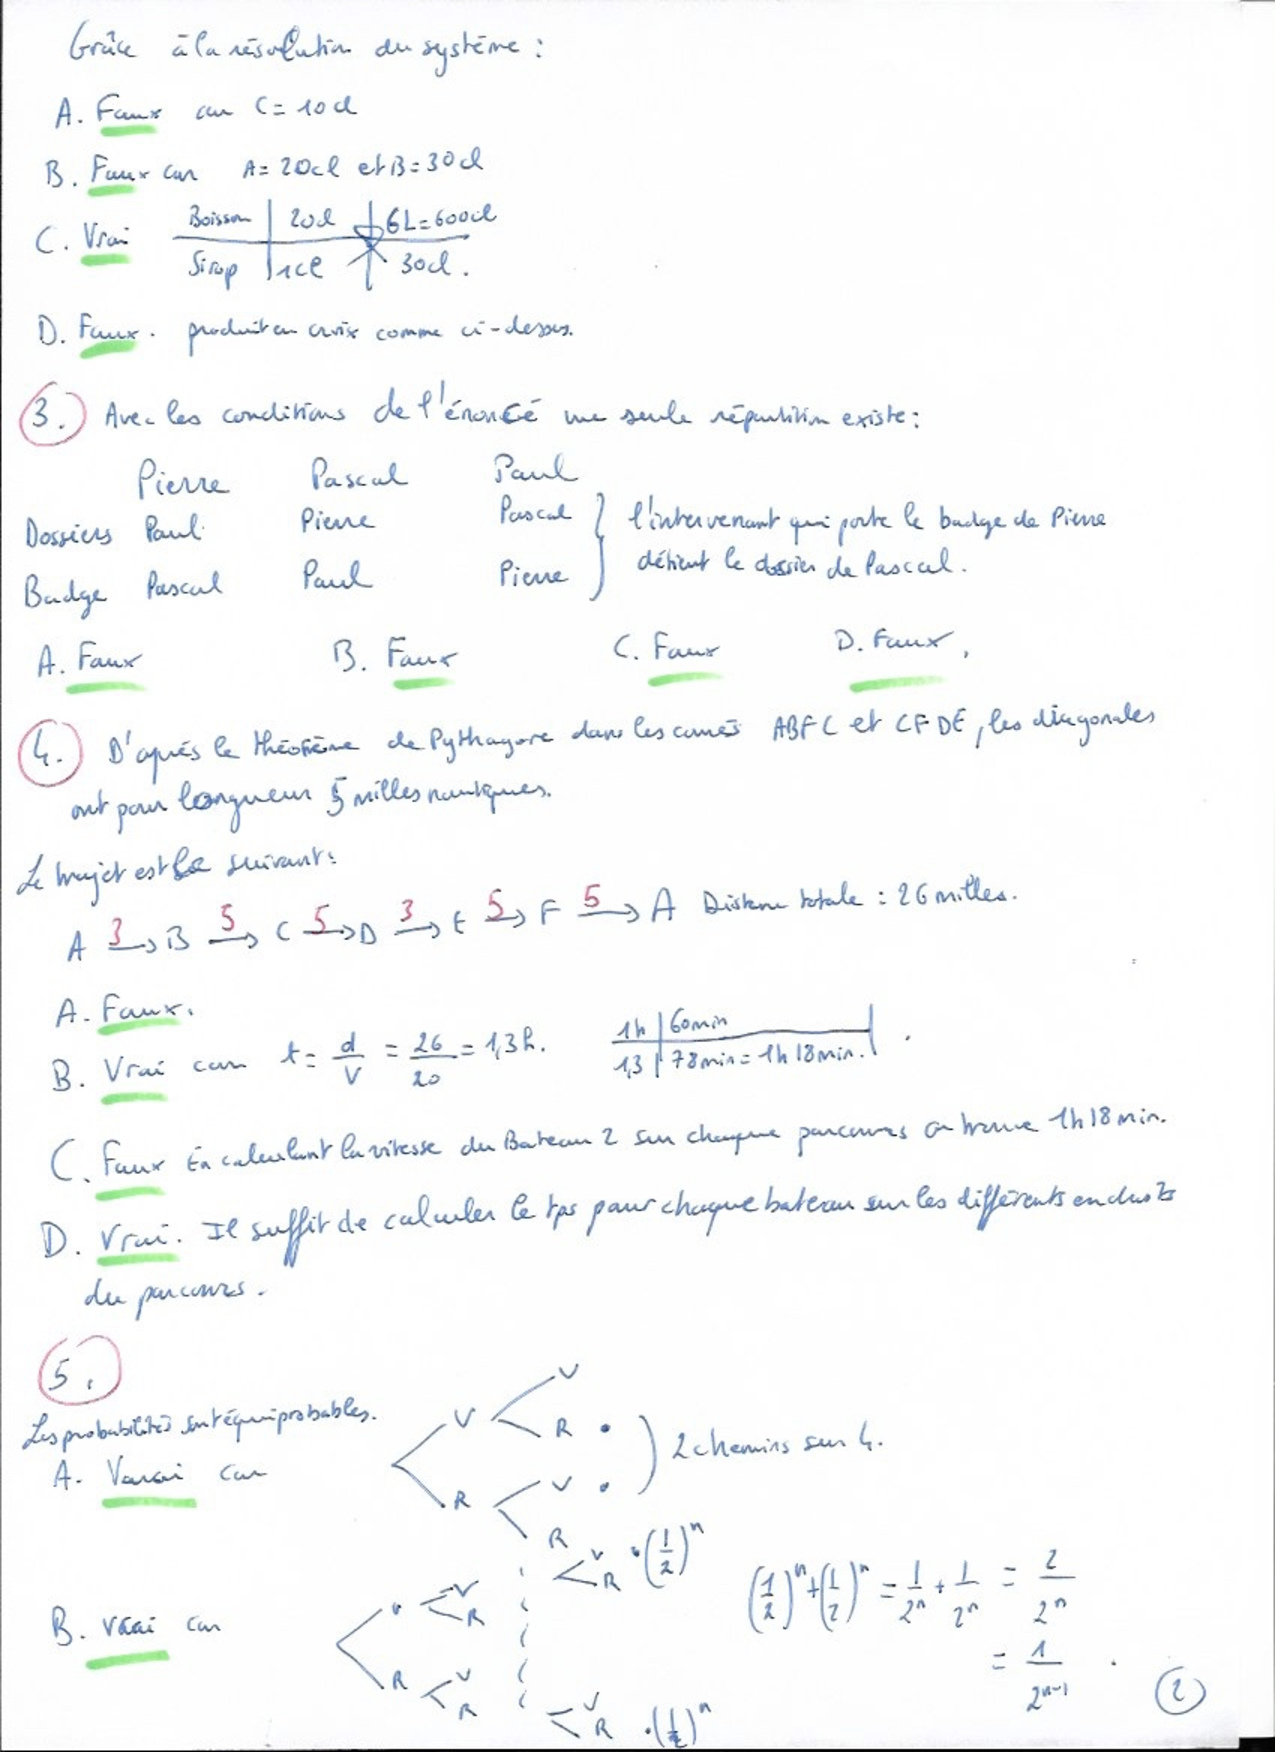 Grâce à la résolution du système :
A. Faux car C = 10cl
B. Faux car A = 20cl et B = 30cl
C. Vrai Boisson 20cl 6L = 600cl
Sirop 1cl 30cl.
D. Faux. produit en croix comme ci-dessus.
3. Avec les conditions de l'énoncé une seule répartition existe :
Pierre Pascal Paul
Dossiers Paul Pierre Pascal
Badge Pascal Paul Pierre
l'intervenant qui porte le badge de Pierre
détient le dossier de Pascal.
A. Faux B. Faux C. Faux D. Faux.
4. D'après le théorème de Pythagore dans les carrés ABFC et CFDE, les diagonales
ont pour longueur 5 milles nautiques.
Le trajet est le suivant :
A 3→ B 5→ C 5→ D 3→ E 5→ F 5→ A Distance totale : 26 milles.
A. Faux.
B. Vrai car t = d/V = 26/20 = 1,3h. 1h 60min
1,3 78min = 1h18min.
C. Faux En calculant la vitesse du Bateau 2 sur chaque parcours on trouve 1h18min.
D. Vrai. Il suffit de calculer le tps pour chaque bateau sur les différents endroits
du parcours.
5.
Les probabilités sont équiprobables.
A. Vrai car
V V
R
R V
R
2 chemins sur 4.
B. Vrai car
V V
R
R V
R
V
R (1/2)^n
V
R (1/2)^n
(1/2)^n + (1/2)^n = 1/2^n + 1/2^n = 2/2^n
= 1/2^(n-1).
2